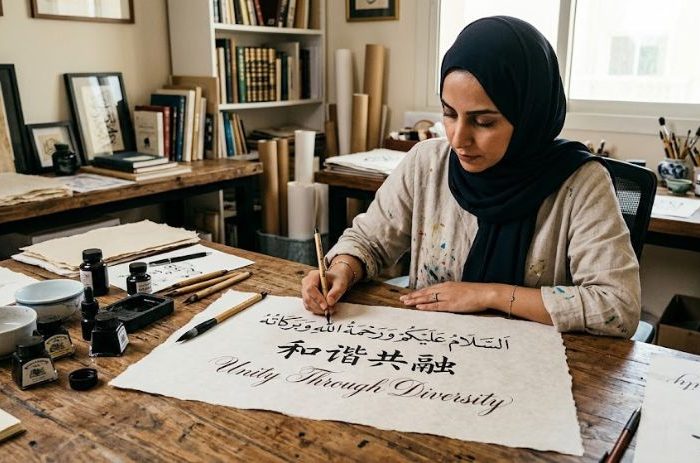 اَلسَّلَامُ عَلَيْكُمْ وَرَحْمَةُ اللهِ وَبَرَكَاتُهُ
和谐共融
Unity Through Diversity